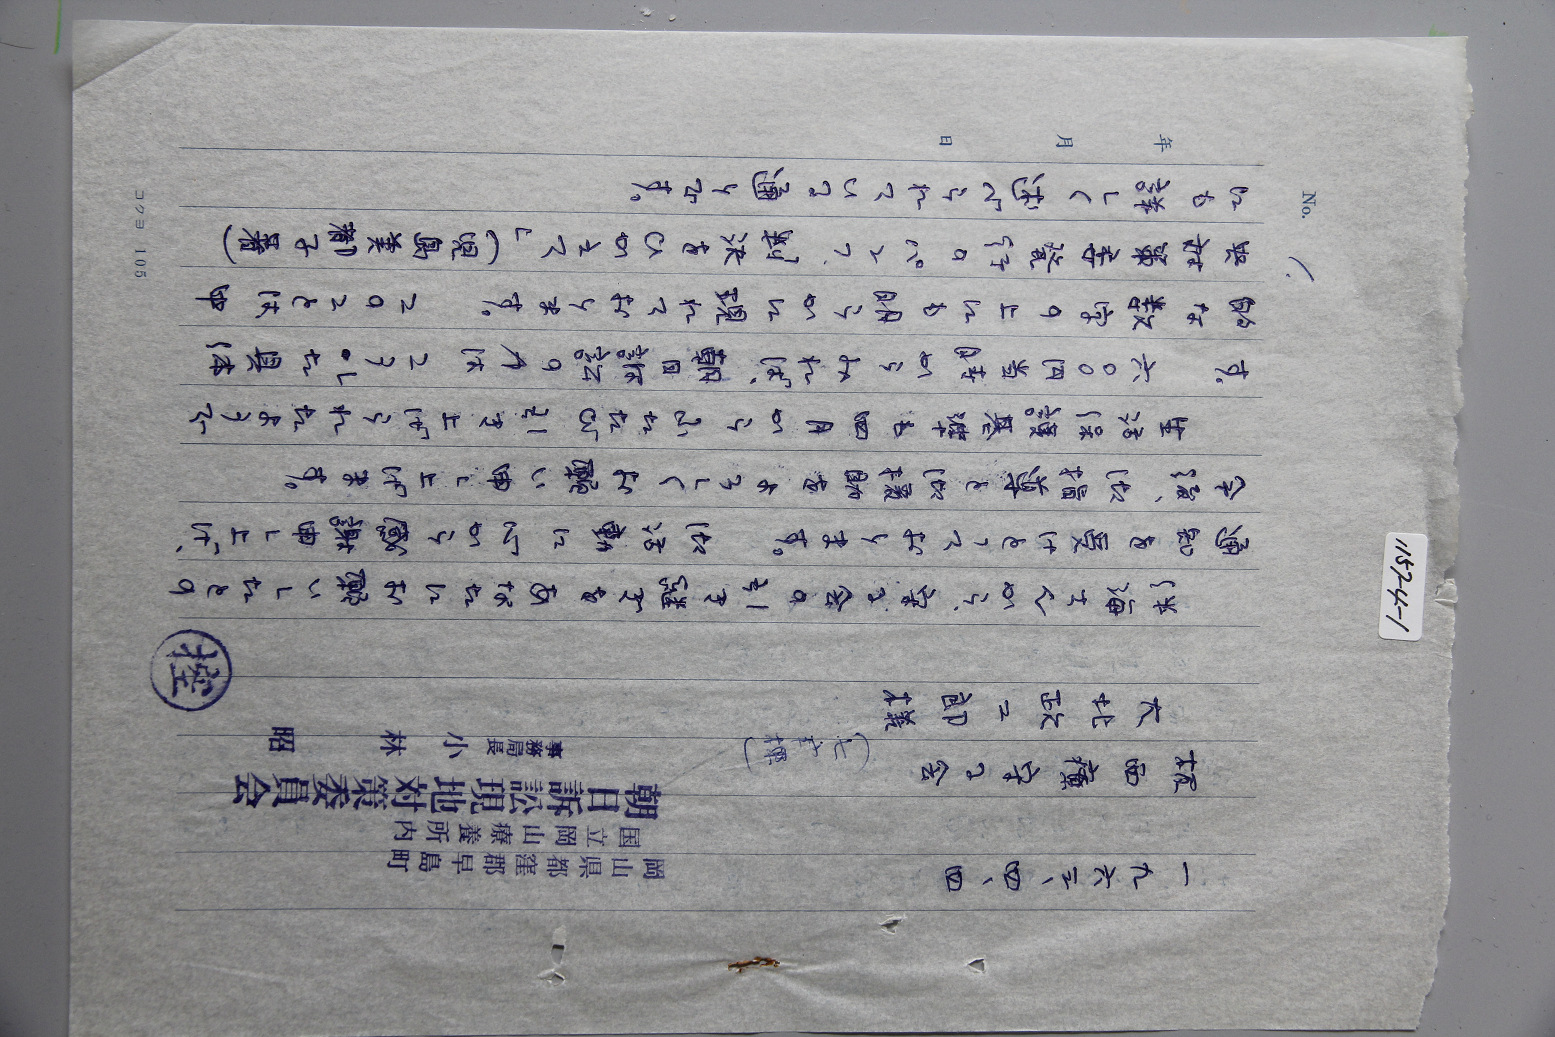 No. 1
年 月 日
一九六三、四、四
岡山県都窪郡早島町
国立岡山療養所内
朝日訴訟現地対策委員会
事務局長 小林 昭
守る会
大北政二郎様
控
伊海さんから、守る会の引き継ぎをあなたにお願いしたとの
通知を受けとっております。 御活動に心から感謝申し上げ、
今後、御指導と御援助をよろしくお願い申し上げます。
生活保護基準も四月からふたたび引き上げられたようで
す。六〇〇円当時からみれば、朝日訴訟の力はこうした具体
的な数字の上にも明らかに現れております。 このことは中
央対策委発行のパンフ、判決をひかえて」(児島美都子著)
にも詳しく述べられている通りです。
コクヨ 105
1157-4-1